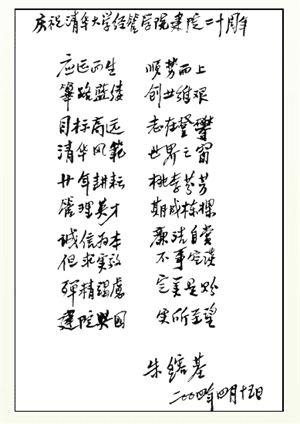 庆祝清华大学经管学院建院二十周年
应运而生 顺势而上
筚路蓝缕 创业维艰
目标高远 志在登攀
清华风范 世界之窗
廿年耕耘 桃李芬芳
管理英才 期成栋梁
诚信为本 廉洁自赏
但求实效 不事空谈
殚精竭虑 完美是瞻
建院兴国 実所至望
朱镕基
二〇〇四年四月十五日